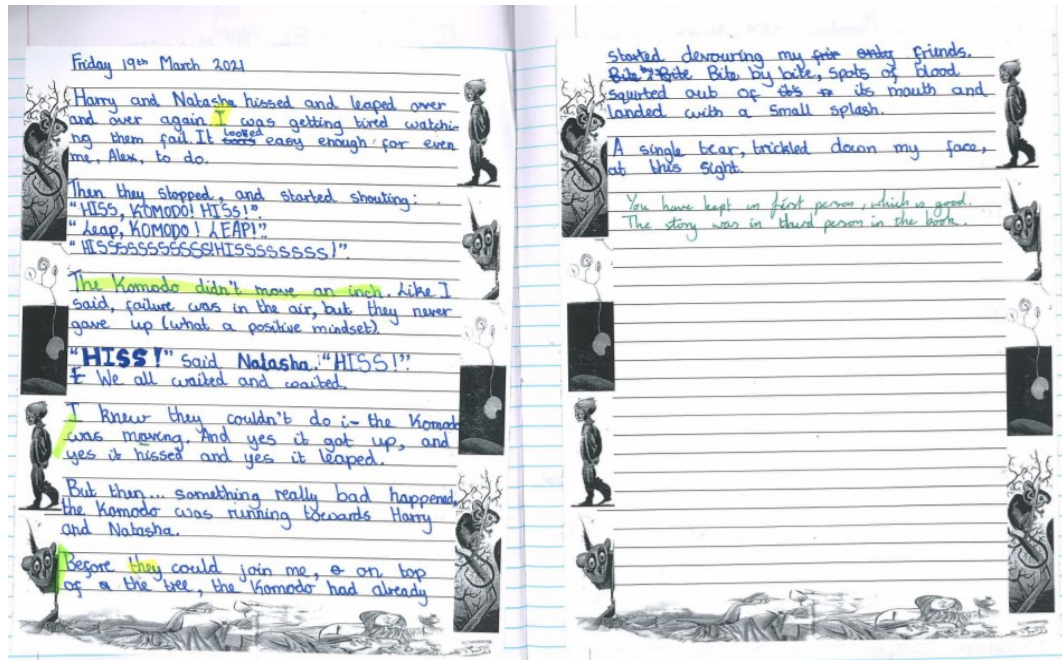 Friday 19th March 2021
Harry and Natasha hissed and leaped over
and over again. I was getting tired watchi-
ng them fail. It looked easy enough for even
me, Alex, to do.
Then they stopped, and started shouting:
"HISS, KOMODO! HISS!".
"Leap, KOMODO! LEAP!".
"HISSSSSSSSSSS!HISSSSSSSS!".
The Komodo didn't move an inch. Like I
said, failure was in the air, but they never
gave up (what a positive mindset).
"HISS!" Said Natasha. "HISS!".
We all waited and waited.
I knew they couldn't do i- the Komodo
was moving. And yes it got up, and
yes it hissed and yes it leaped.
But then... something really bad happened,
the Komodo was running towards Harry
and Natasha.
Before they could join me, on top
of the tree, the Komodo had already
started devouring my friends.
Bite by bite, spots of blood
squirted out of its mouth and
landed with a small splash.
A single tear, trickled down my face,
at this sight.
You have kept in first person, which is good.
The story was in third person in the book.